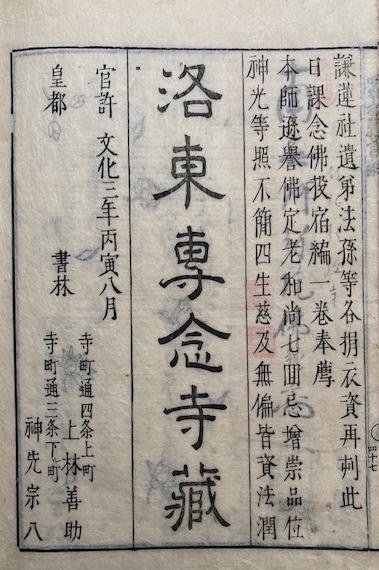 謙蓮社遺弟法孫等各捐衣資再刋此
日課念佛投宿編一卷奉薦
本師遜譽佛定老和尚七囬忌增崇品位
神光等照不簡四生慈及無偏皆資法潤
洛東專念寺藏
官許 文化三年丙寅八月
皇都 書林
寺町通四条上町
上林善助
寺町通三条下町
神先宗八
四十七